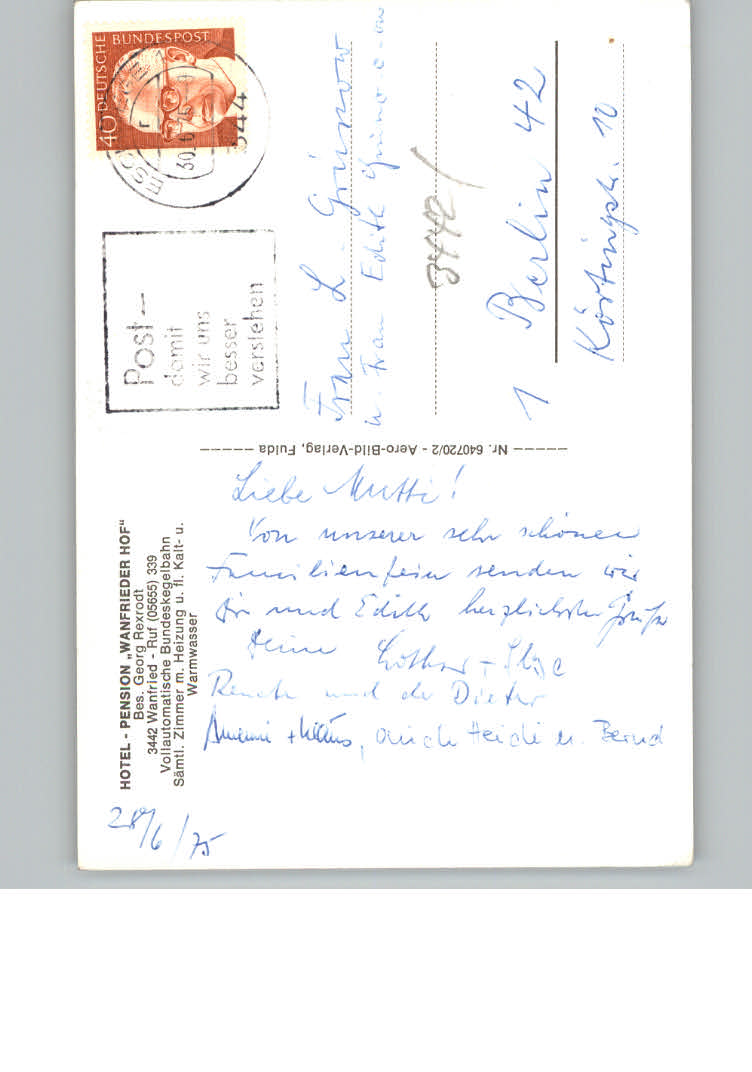 HOTEL - PENSION „WANFRIEDER HOF"
Bes. Georg Rexrodt
3442 Wanfried - Ruf (05655) 339
Vollautomatische Bundeskegelbahn
Sämtl. Zimmer m. Heizung u. fl. Kalt- u.
Warmwasser
28/6/75
Liebe Mutti!
Von unserer sehr schönen
Familienfeier senden wir
Dir und Edith herzlichste Grüße
Deine Lothar +
Renate und der Dieter
auch Heidi u. Bernd
Nr. 640720/2 - Aero-Bild-Verlag, Fulda
DEUTSCHE BUNDESPOST
40
344
Post -
damit
wir uns
besser
verstehen
Frau L. Grunow
u. Frau Edith Grunow
3442
1 Berlin 42
Körtingstr. 10